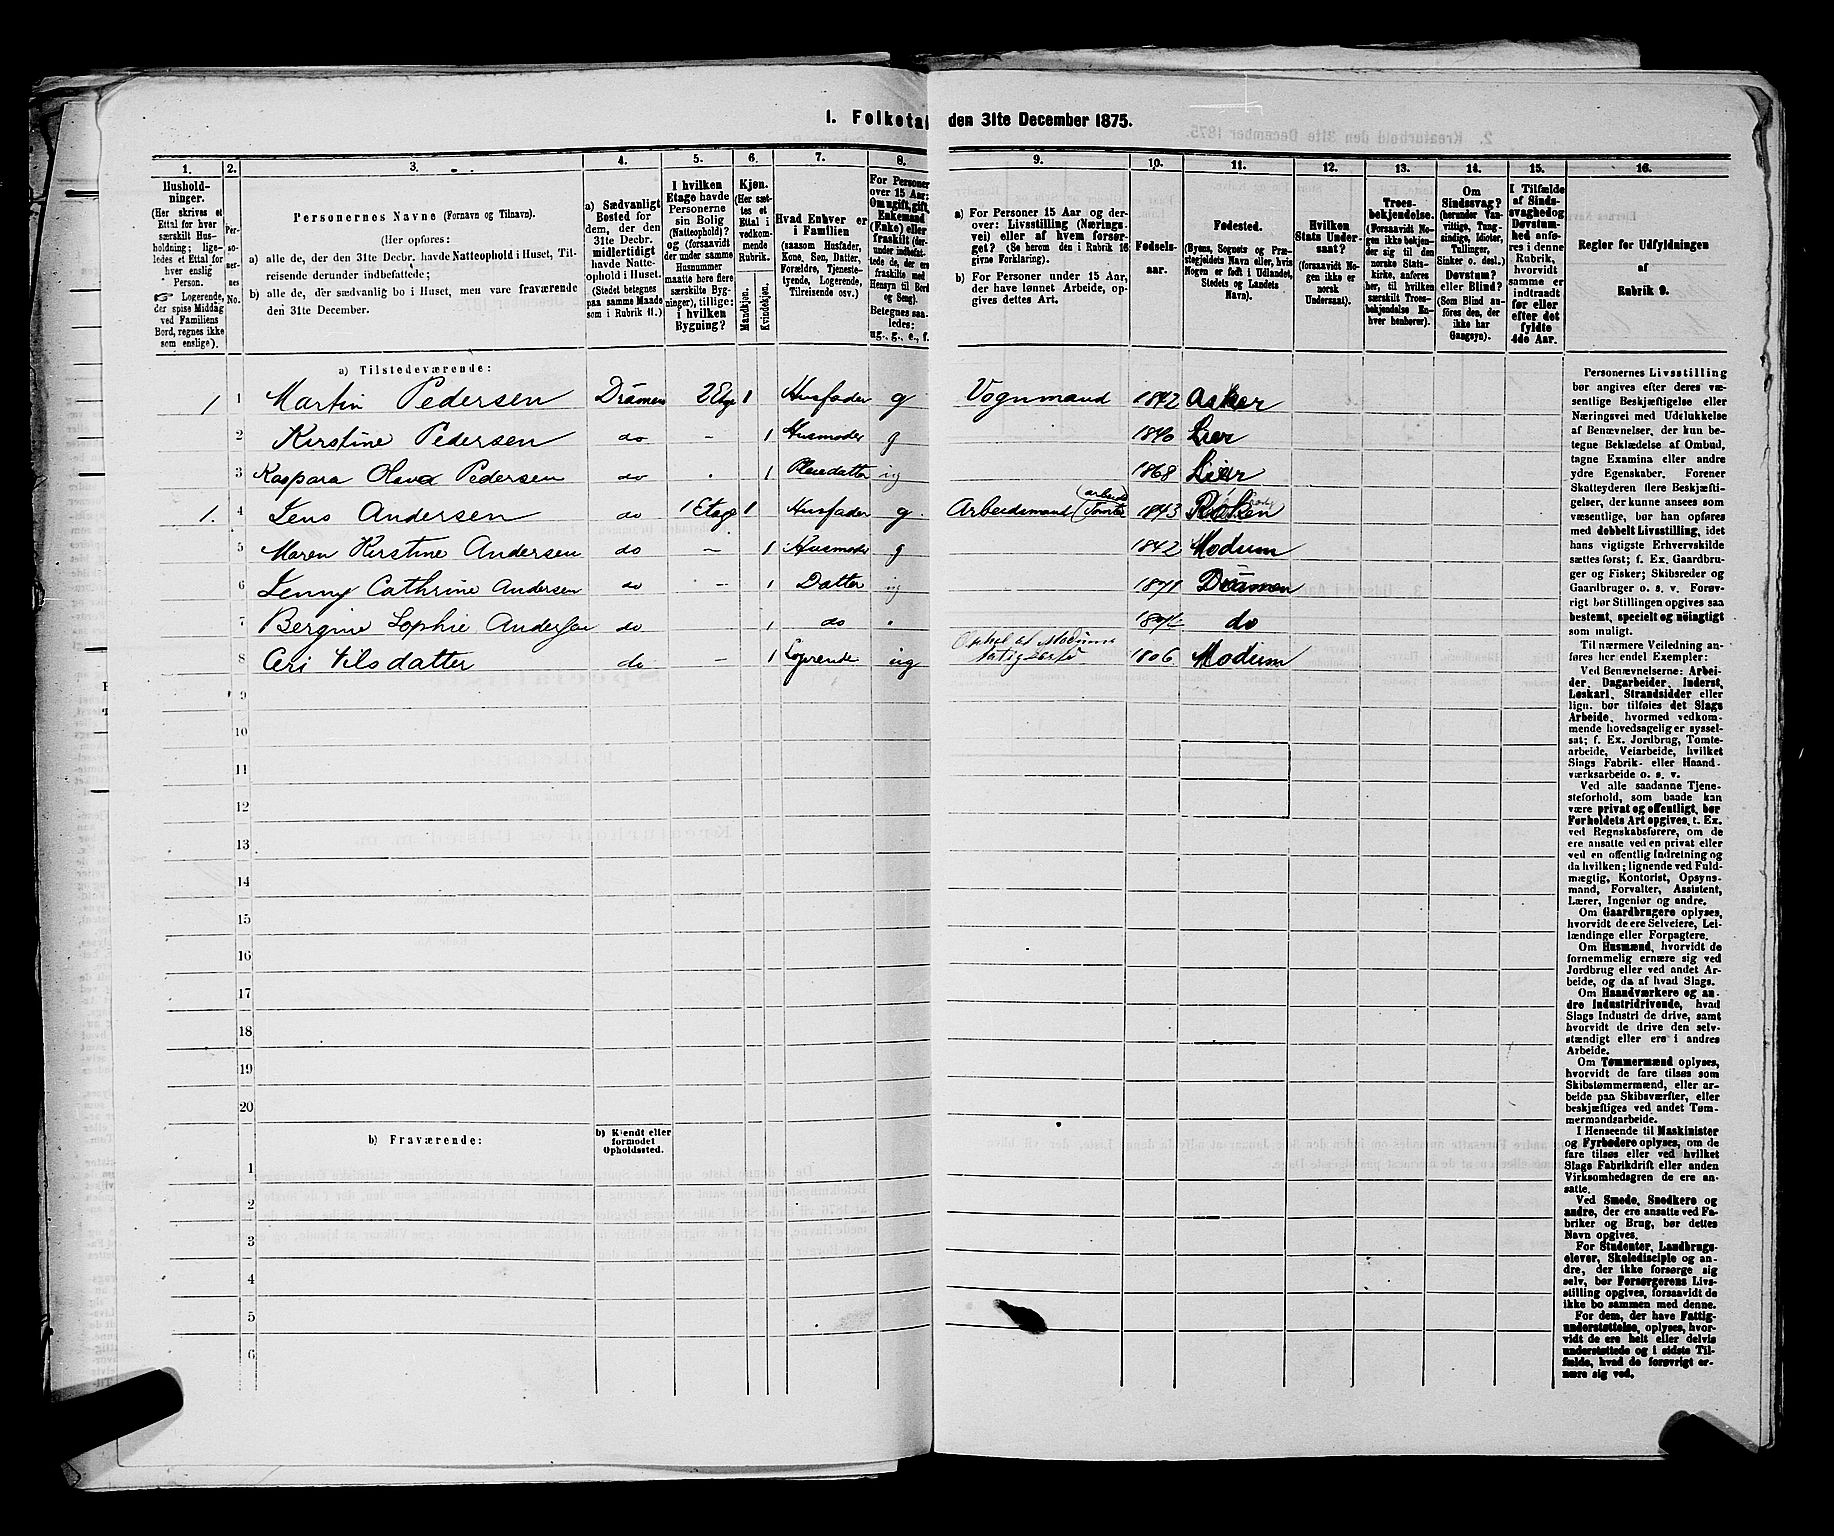 1. Folketal den 31te December 1875.
1. 2. 3. 4. 5. 6. 7. 8. 9. 10. 11. 12. 13. 14. 15. 16.
Hushold-
ninger.
(Her skrives et
Ettal for hver
særskilt Hus-
holdning; lige-
ledes et Ettal for
hver enslig
Person.
☞ Logerende,
der spise Middag
ved Familiens
Bord, regnes ikke
som enslige).
Per-
so-
ner-
nes
No.
Personernes Navne (Fornavn og Tilnavn).
(Her opføres:
a) alle de, der den 31te Decbr. havde Natteophold i Huset, Til-
reisende derunder indbefattede;
b) alle de, der sædvanlig bo i Huset, men vare fraværende
den 31te December.
a) Sædvanligt
Bosted for
dem, der den
31te Decbr.
midlertidigt
havde Natte-
ophold i Huset.
(Stedet betegnes
paa samme Maade
som i Rubrik 11.)
I hvilken
Etage havde
Personerne
sin Bolig
(Natteophold)?
og (forsaavidt
der under samme
Husnummer
maatte høre flere
særskilte Byg-
ninger), tillige:
i hvilken
Bygning?
Kjøn.
(Her sæt-
tes et
Ettal i
vedkom-
mende
Rubrik.
Mandkjøn.
Kvindekjøn.
Hvad Enhver er
i Familien
(saasom Husfader,
Kone, Søn, Datter,
Forældre, Tjeneste-
tyende, Logerende,
Tilreisende osv.)
For Personer
over 15 Aar:
Om ugift, gift,
Enkemand
(Enke) eller
fraskilt (der-
under indbefat-
tede de, der ere
fraskilte med
Hensyn til Bord
og Seng).
Betegnes saa-
ledes:
ug., g., e., f.
a) For Personer 15 Aar og der-
over: Livsstilling (Nærings-
vei) eller af hvem forsør-
get? (Se herom den i Rubrik 16
givne Forklaring).
b) For Personer under 15 Aar,
der have lønnet Arbeide, op-
gives dettes Art.
Fødsels-
aar.
Fødested.
(Byens, Sognets og Præ-
stegjeldets Navn eller, hvis
Nogen er født i Udlandet,
Stedets og Landets
Navn).
Hvilken
Stats Under-
saat?
(forsaavidt No-
gen ikke er
norsk
Undersaat).
Troes-
bekjendelse.
(Forsaavidt No-
gen ikke bekjen-
der sig til den
norske Stats-
kirke, anføres
her, til hvilken
særskilt Troes-
bekjendelse En-
hver henhører).
Om
Sindssvag?
(herunder Van-
vittige, Tung-
sindige, Idioter,
Tullinger,
Sinker o. desl.).
Døvstum?
eller Blind?
(Som Blind an-
føres den, der
ikke har
Gangsyn).
I Tilfælde
af Sinds-
svaghed og
Døvstum-
hed anfø-
res i denne
Rubrik,
hvorvidt
samme er
indtraadt
før eller
efter det
fyldte
4de Aar.
Regler for Udfyldningen
af
Rubrik 9.
a) Tilstedeværende:
1 1 Martin Pedersen Drámen 2 Etage 1 Husfader g Vognmand 1842 Asker
2 Kirstine Pedersen do - 1 Husmoder g 1840 Lier
3 Kaspara Olava Pedersen do 1 Pleiedatter ug 1868 Lier
1. 4 Jens Andersen do 1 Etage 1 Husfader g Arbeidsmand (Tomte arbeide) 1843 Røken
5 Maren Kirstine Andersen do - 1 Husmoder g 1842 Modum
6 Jenny Cathrine Andersen do - 1 Datter ug 1871 Drámen
7 Bergine Sophie Andersen do 1 do " do
8 Nilsdatter do - 1 Logerende ug af Modums 1806 Modum
9
10
11
12
13
14
15
16
17
18
19
20
b) Fraværende:
b) Kjendt eller
formodet
Opholdssted.
1
2
3
4
5
6
Personernes Livsstilling
bør angives efter deres væ-
sentlige Beskjæftigelse eller
Næringsvei med Udelukkelse
af Benævnelser, der kun be-
tegne Beklædelse af Ombud,
tagne Examina eller andre
ydre Egenskaber. Forener
Skatteyderen flere Beskjæfti-
gelser, der kunne ansees som
væsentlige, bør han opføres
med dobbelt Livsstilling, idet
hans vigtigste Erhvervskilde
sættes først; f. Ex. Gaardbru-
ger og Fisker; Skibsreder og
Gaardbruger o. s. v. Forøv-
rigt bør Stillingen opgives saa
bestemt, specielt og nøiagtigt
som muligt.
Til nærmere Veiledning an-
føres her endel Exempler:
Ved Benævnelserne: Arbei-
der, Dagarbeider, Inderst,
Løskarl, Strandsidder eller
lign. bør tilføies det Slags
Arbeide, hvormed vedkom-
mende hovedsagelig er syssel-
sat; f. Ex. Jordbrug, Tomte-
arbeide, Veiarbeide, hvilket
Slags Fabrik- eller Haand-
værksarbeide o. s. v.
Ved alle saadanne Tjene-
steforhold, som baade kan
være privat og offentligt, bør
Forholdets Art opgives, t. Ex.
ved Regnskabsførere, om de
ere ansatte ved en privat eller
ved en offentlig Indretning og
da hvilken; lignende ved Fuld-
mægtig, Kontorist, Opsyns-
mand, Forvalter, Assistent,
Lærer, Ingeniør og andre.
Om Gaardbrugere oplyses,
hvorvidt de ere Selveiere, Lei-
lændinge eller Forpagtere.
Om Husmænd, hvorvidt de
fornemmelig ernære sig ved
Jordbrug eller ved andet Ar-
beide, og da af hvad Slags.
Om Haandværkere og an-
dre Industridrivende, hvad
Slags Industri de drive, samt
hvorvidt de drive den selv-
stændigt eller ere i andres
Arbeide.
Om Tømmermænd oplyses,
hvorvidt de fare tilsøs som
Skibstømmermænd, eller ar-
beide paa Skibsværfter, eller
beskjæftiges ved andet Tøm-
mermandsarbeide.
I Henseende til Maskinister
og Fyrbødere oplyses, om de
fare tilsøs eller ved hvilket
Slags Fabrikdrift eller anden
Virksomhedsgren de ere an-
satte.
Ved Smede, Snedkere og
andre, der ere ansatte ved Fa-
briker og Brug, bør dettes
Navn opgives.
For Studenter, Landbrugs-
elever, Skoledisciple og an-
dre, der ikke forsørge sig
selv, bør Forsørgerens Livs-
stilling opgives, forsaavidt de
ikke bo sammen med denne.
For dem, der have Fattig-
understøttelse, oplyses, hvor-
vidt de ere helt eller delvis
understøttede og i sidste Til-
fælde, hvad de forøvrigt er-
nære sig ved.